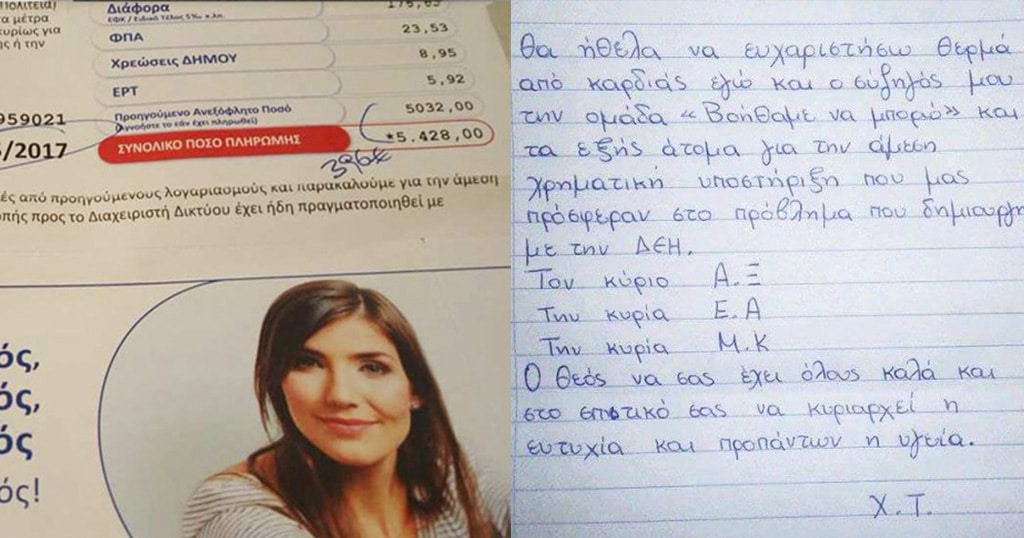 Πολιτεία)
α μέτρα
κυρίως για
ς ή την
Διάφορα
ΕΦΚ / Ειδικό Τέλος 5‰ κ.λπ.
175,63
ΦΠΑ
23,53
Χρεώσεις ΔΗΜΟΥ
8,95
ΕΡΤ
5,92
Προηγούμενο Ανεξόφλητο Ποσό
(αγνοήστε το εάν έχει πληρωθεί)
5032,00
959021
/2017
ΣΥΝΟΛΙΚΟ ΠΟΣΟ ΠΛΗΡΩΜΗΣ
*5.428,00
396€
ές από προηγούμενους λογαριασμούς και παρακαλούμε για την άμεση
οπής προς το Διαχειριστή Δικτύου έχει ήδη πραγματοποιηθεί με
ός,
ός,
ός
ός!
Θα ήθελα να ευχαριστήσω θερμά
από καρδιάς εγώ και ο σύζηγός μου
την ομάδα «Βοήθαμε να μπορώ» και
τα εξής άτομα για την άμεση
χρηματική υποστήριξη που μας
πρόσφεραν στο πρόβλημα που δημιουργη
με την ΔΕΗ.
Τον κύριο Α.Ξ
Την κυρία Ε.Α
Την κυρία Μ.Κ
Ο Θεός να σας έχει όλους καλά και
στο σπιτικό σας να κυριαρχεί η
ευτυχία και προπάντων η υγεία.
Χ.Τ.